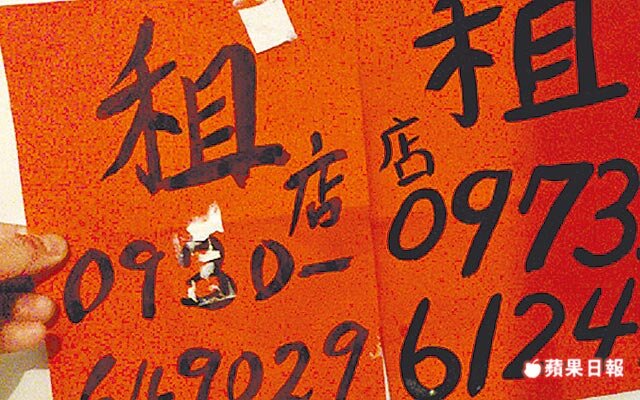 租
店
0930-
649029
租
店
0973
6124
蘋果日報